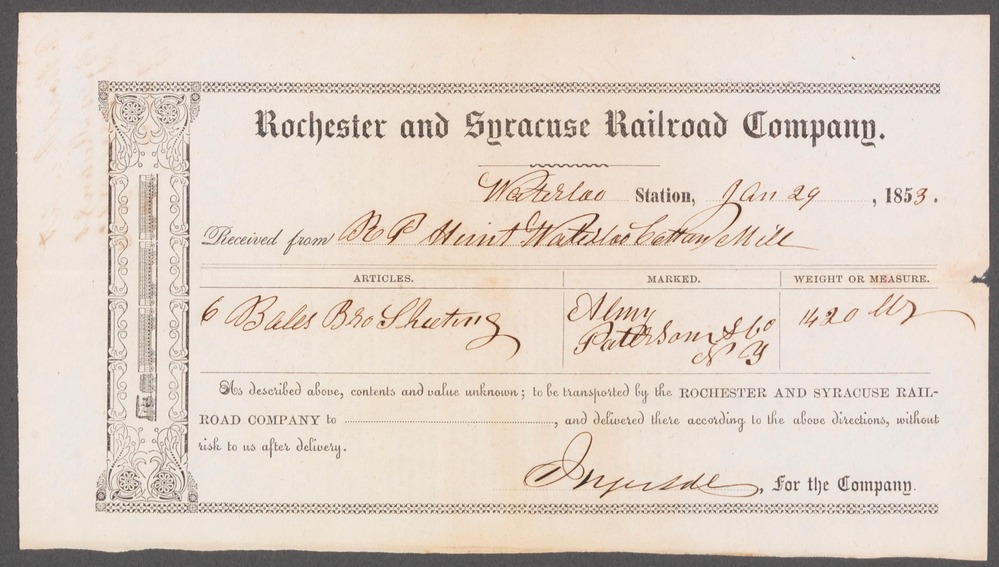 Rochester and Syracuse Railroad Company.
Waterloo Station, Jan 29, 1853.
Received from R P Hunt Waterloo Cotton Mill
ARTICLES. MARKED. WEIGHT OR MEASURE.
6 Bales Bro Sheeting Almy 1420 lbs
Patterson & Co
N Y
As described above, contents and value unknown; to be transported by the ROCHESTER AND SYRACUSE RAIL-
ROAD COMPANY to , and delivered there according to the above directions, without
risk to us after delivery.
, For the Company.